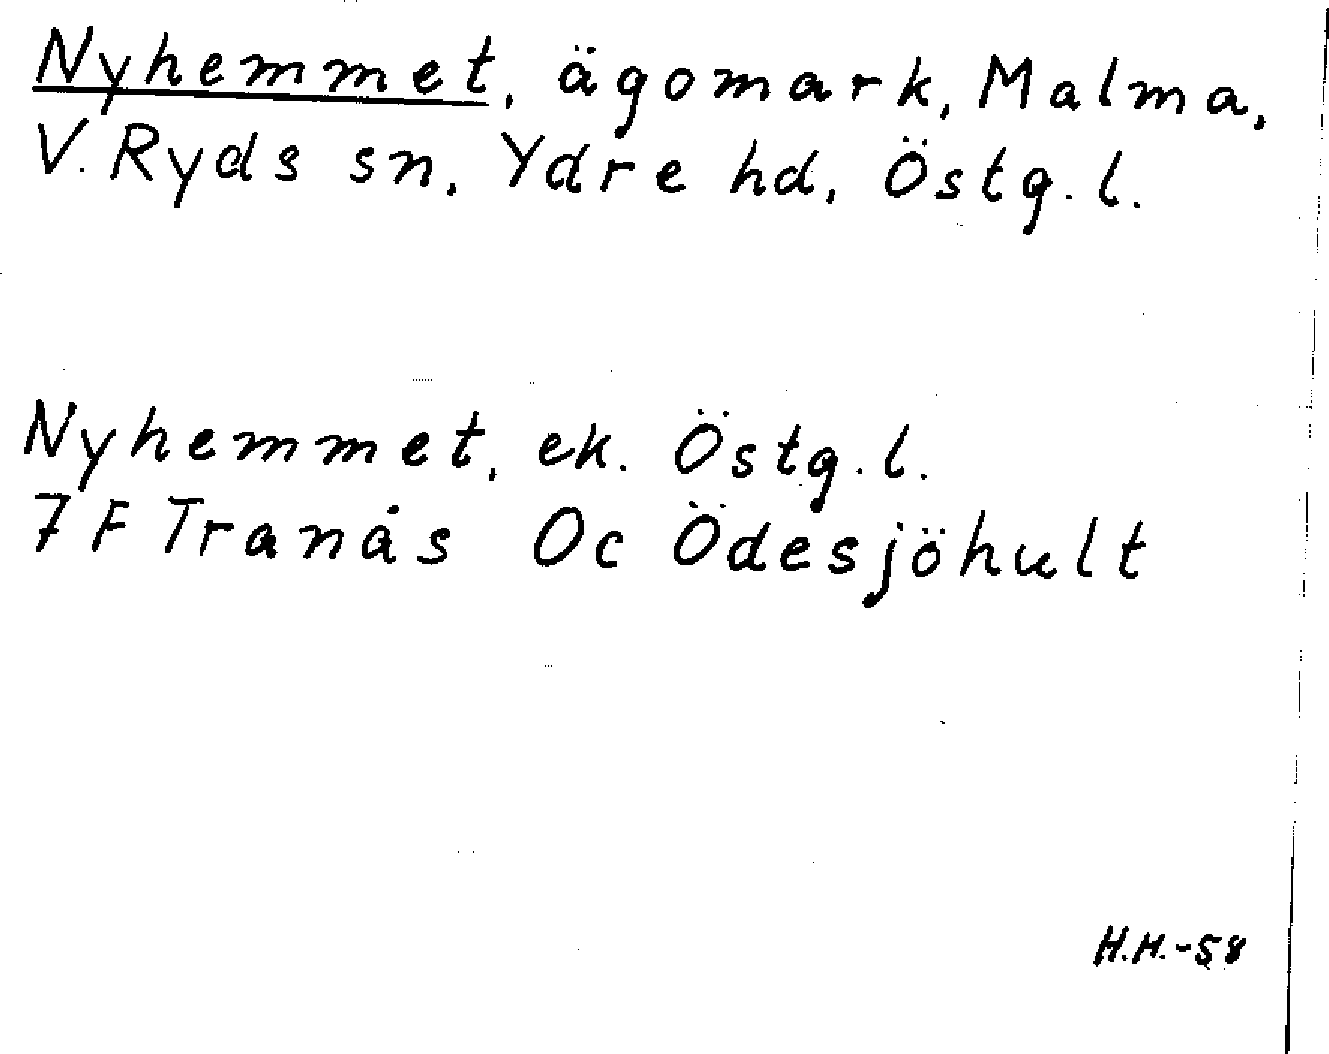 Nyhemmet, ägomark, Malma,
V. Ryds sn, Ydre hd, Östg. l.
Nyhemmet, ek. Östg. l.
7 F Tranås Oc Ödesjöhult
H.H.-58